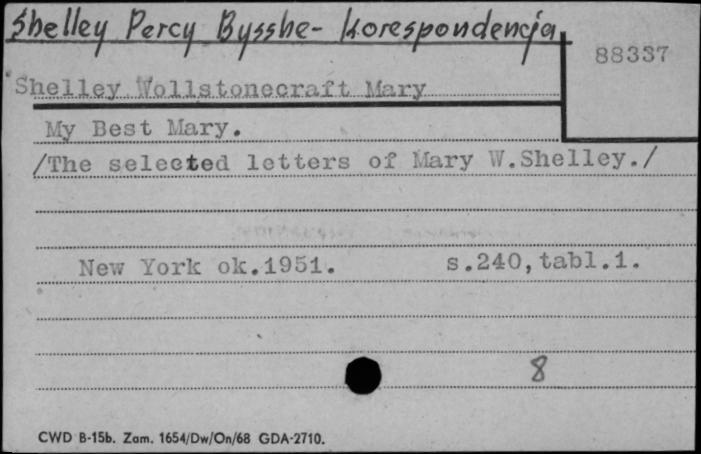 Shelley Percy Bysshe- korespondencja
88337
Shelley Wollstonecraft Mary
My Best Mary.
/The selected letters of Mary W.Shelley./
New York ok.1951. s.240,tabl.1.
8
CWD B-15b. Zam. 1654/Dw/On/68 GDA-2710.